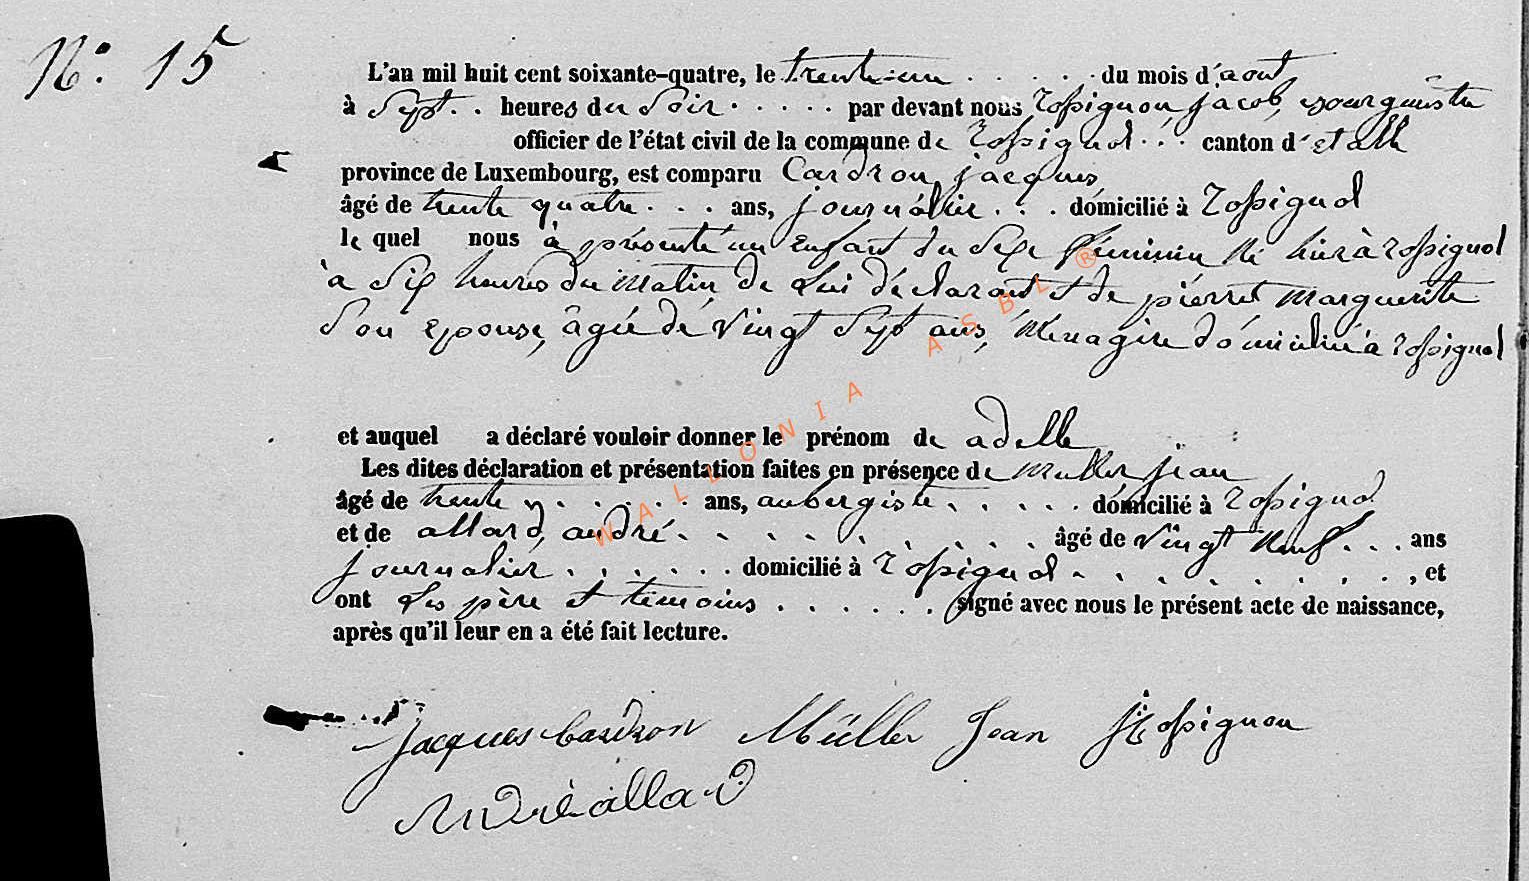 N° 15
L'an mil huit cent soixante-quatre, le trente-un . . . . . du mois d'aout
à Sept . . heures du Soir . . . . . par devant nous Rossignon jacob, bourgmestre
officier de l'état civil de la commune de Rossignol . . . canton d'etalle
province de Luxembourg, est comparu Cardron jacques
âgé de trente quatre . . . ans, journalier . . . domicilié à Rossignol
le quel nous à présenté un Enfant du Sexe féminin Né hier à rossignol
à Six heures du Matin de Lui déclarant et de pierret marguerite
Son epouse, âgée de Vingt Sept ans, Ménagère domiciliée à rossignol
et auquel a déclaré vouloir donner le prénom de adelle
Les dites déclaration et présentation faites en présence de muller jean
âgé de trente . . . . . . ans, aubergiste . . . . . domicilié à rossignol
et de allard, andré . . . . . . . . . âgé de Vingt Neuf . . . ans
journalier . . . . . . domicilié à rossignol . . . . . . . . . , et
ont Les père et témoins . . . . . . signé avec nous le présent acte de naissance,
après qu'il leur en a été fait lecture.
Jacques Cardron Müller Jean J Rossignon
André allard
WALLONIA ASBL ®